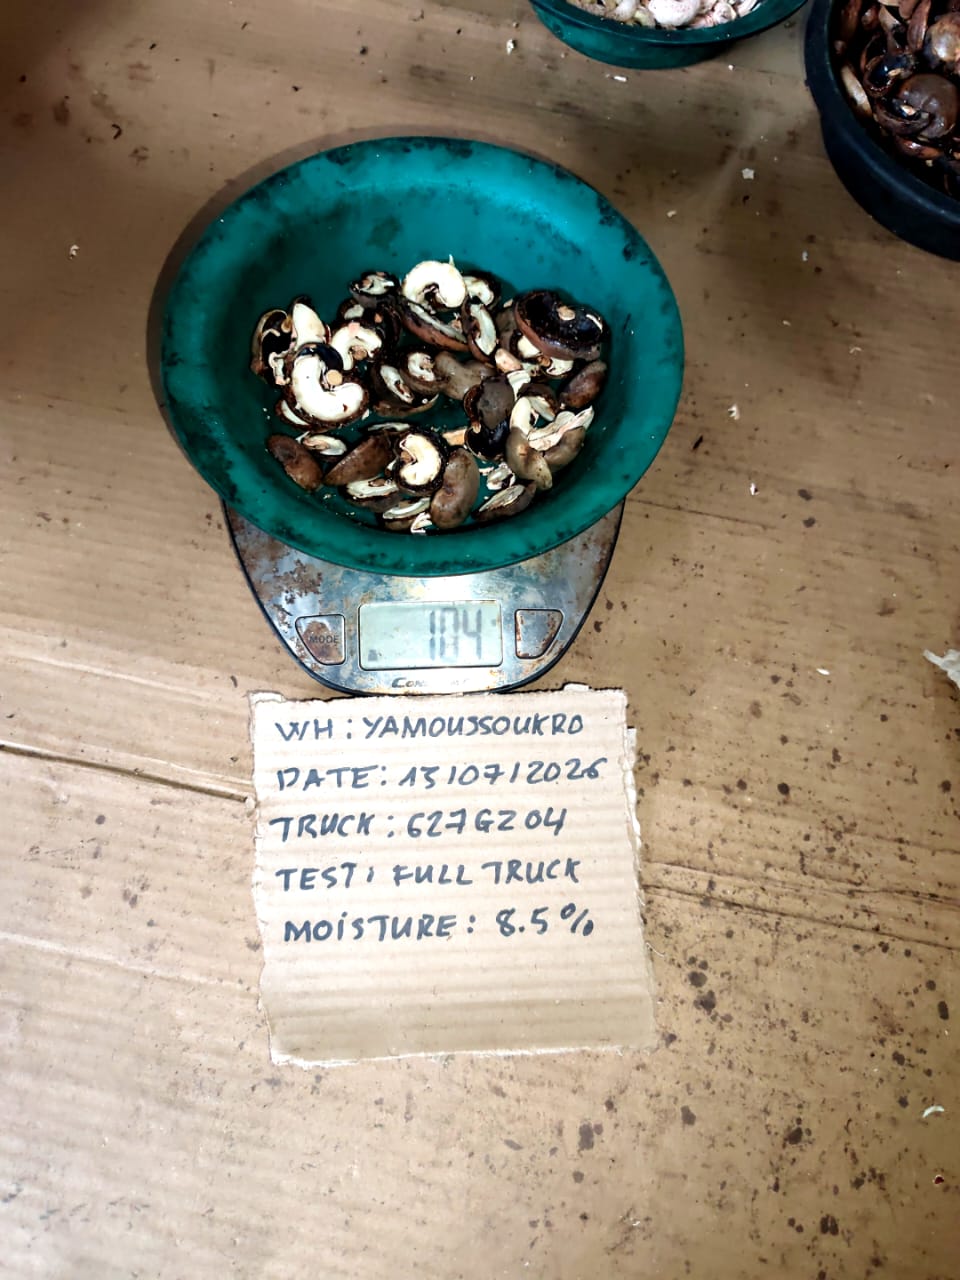 104
MODE
WH : YAMOUSSOUKRO
DATE : 15/07/2026
TRUCK : 627GZ04
TEST : FULL TRUCK
MOISTURE : 8.5%